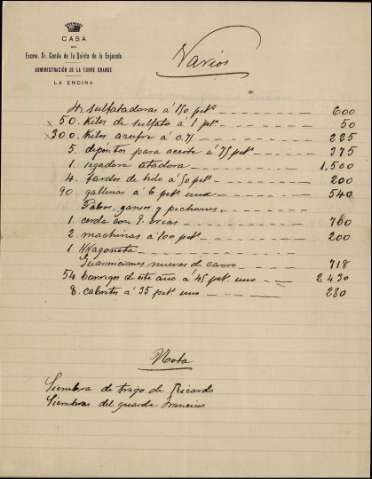 CASA
DEL
Excmo. Sr. Conde de la Quinta de la Enjarada
ADMINISTRACIÓN DE LA TORRE GRANDE
LA ENCINA
Varios
4. sulfatadoras á 150 pts 600
x 50. Kilos de sulfato á 1 pt. 50
x 300. Kilos azufre á 0.75 225
5. depositos para aceite á 75 pts 375
1. segadora atadora 1,500
4. fardos de hilo á 50 pts 200
90. gallinas á 6 pts una 540
Pabos, gansos y pichones
1. cerda con 9. crias 760
2. machinas á 100 pts 200
1 Wagoneta
Guarniciones nuevas de carro 718
54 borregos de este año á 45 pts uno 2430
8. cabritos á 35 pts uno 280
Nota
Siembra de trigo de Ricardo
Siembras del guarda Francisco